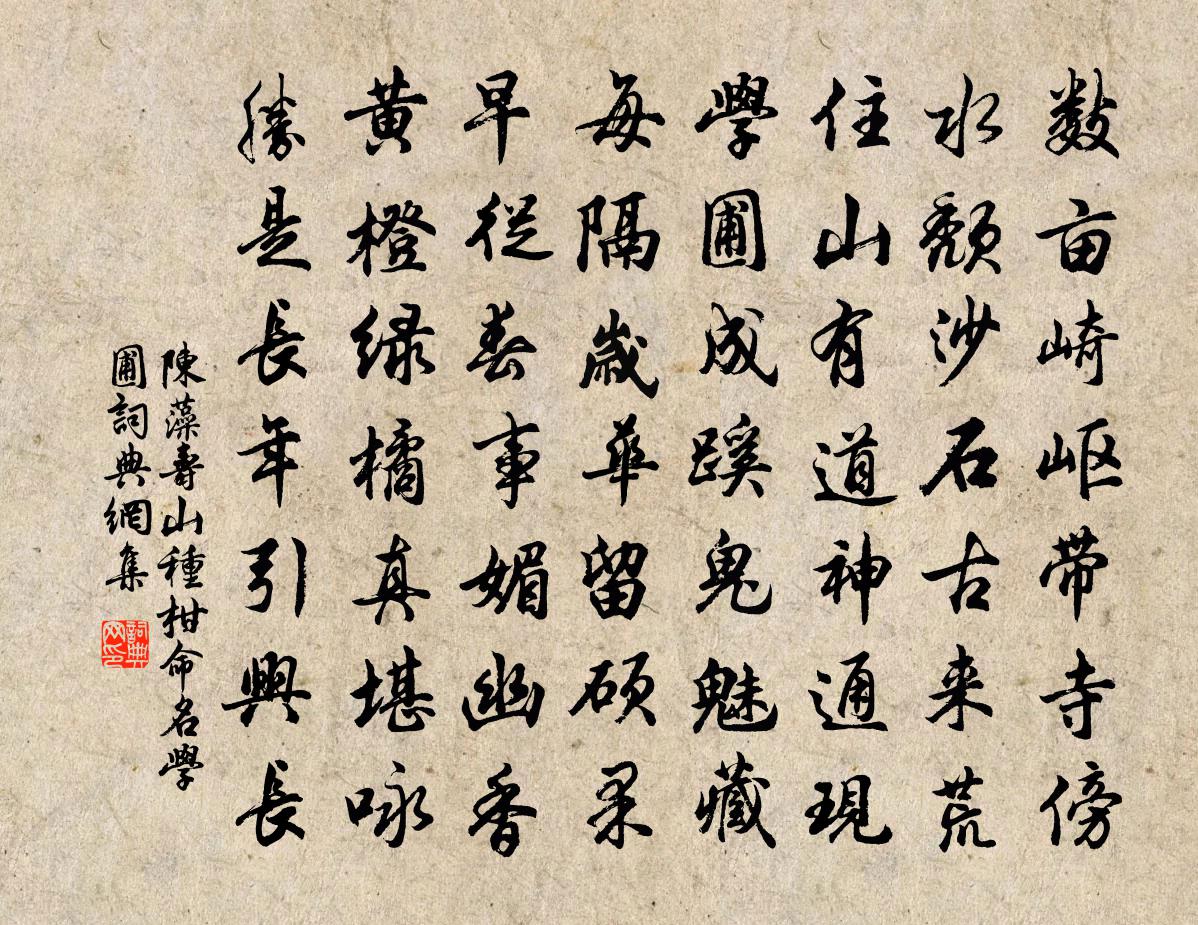 数亩崎岖带寺傍
水颓沙石古来荒
住山有道神通現
學圃成蹊鬼魅藏
每隔歲華留硕果
早從春事媚幽香
黄橙绿橘真堪咏
勝是長年引興長
陳藻壽山種柑命名學
圃詞典網集
詞典
网印